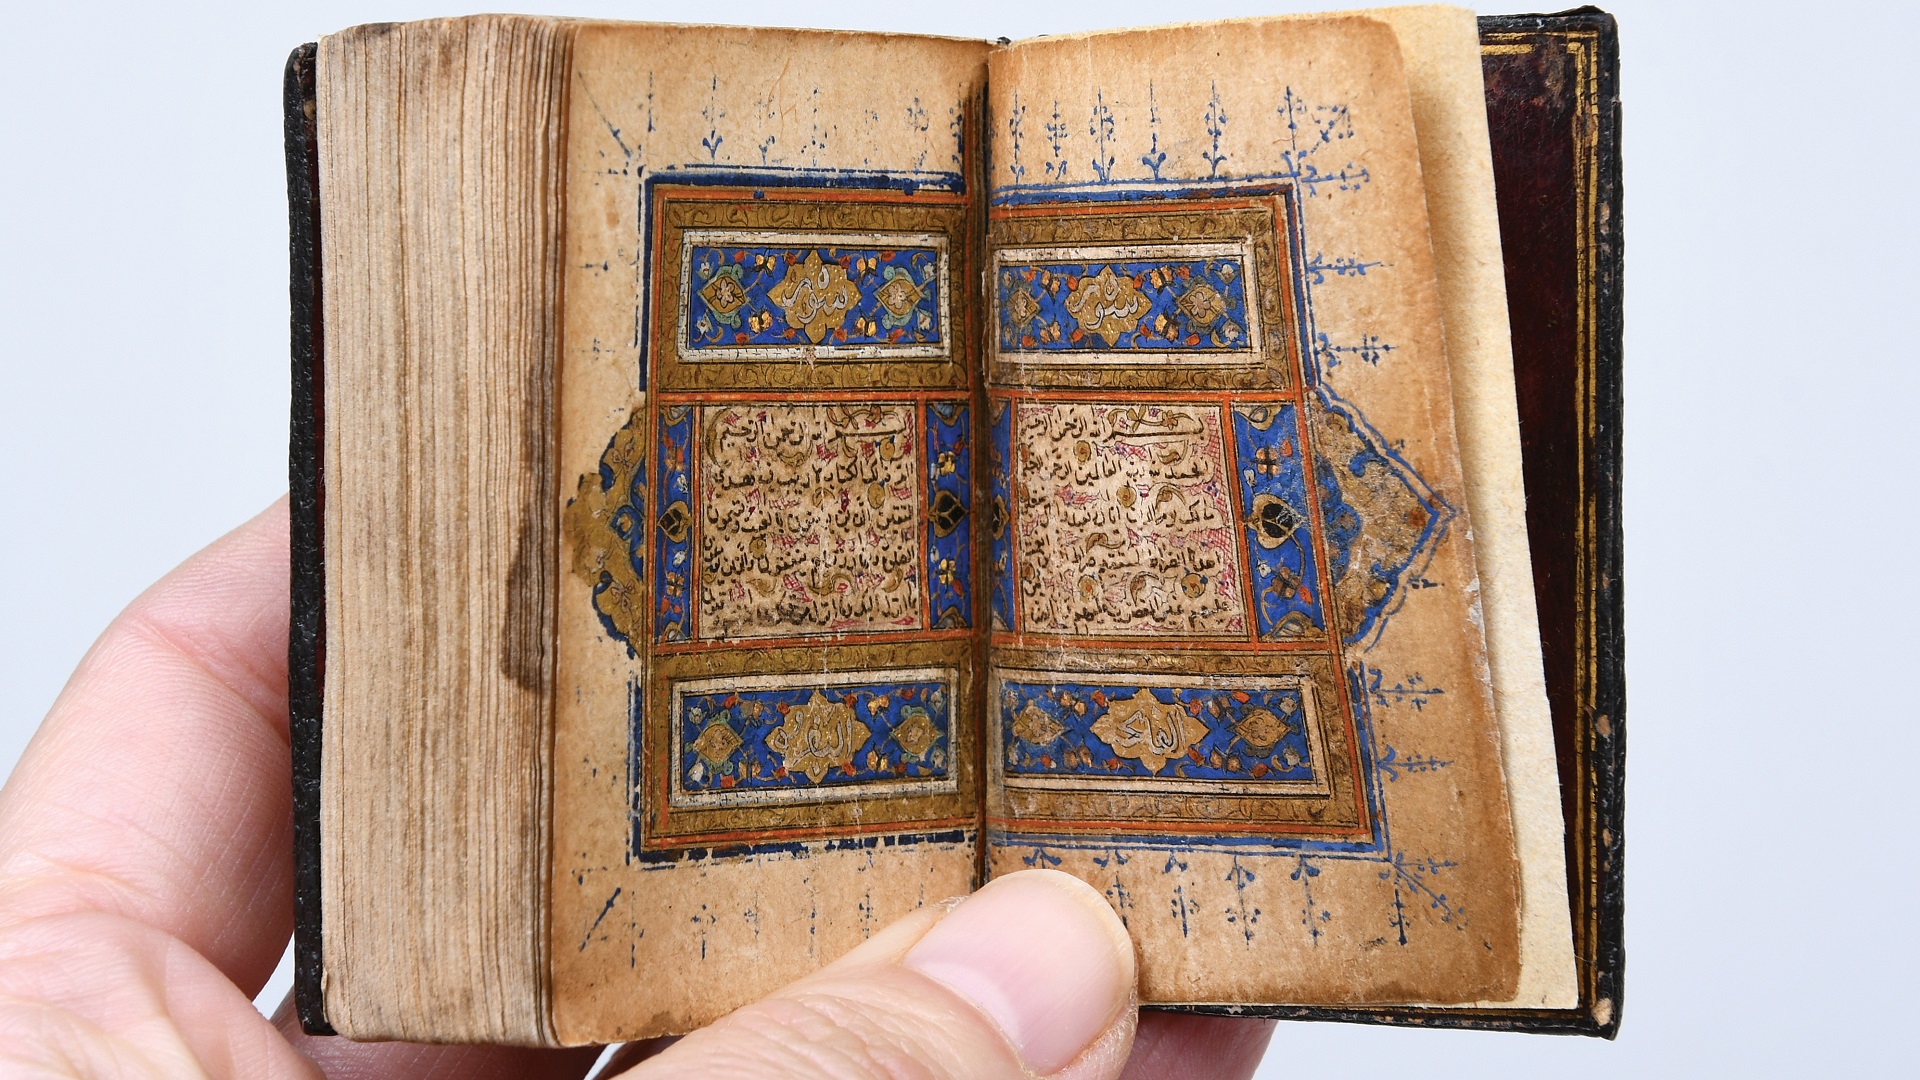 سورة
بسم الله الرحمن الرحيم
الحمد لله رب العالمين الرحمن الرحيم
مالك يوم الدين اياك نعبد
اهدنا الصراط المستقيم صراط
عليهم غير المغضوب عليهم ولا الضا
الفاتحة
سورة
بسم الله الرحمن الرحيم
الم ذلك الكتاب لا ريب فيه هدى
للمتقين الذين يؤمنون بالغيب ويقيمون
الصلوة ومما رزقناهم ينفقون والذين
بما انزل اليك وما انزل من
البقرة